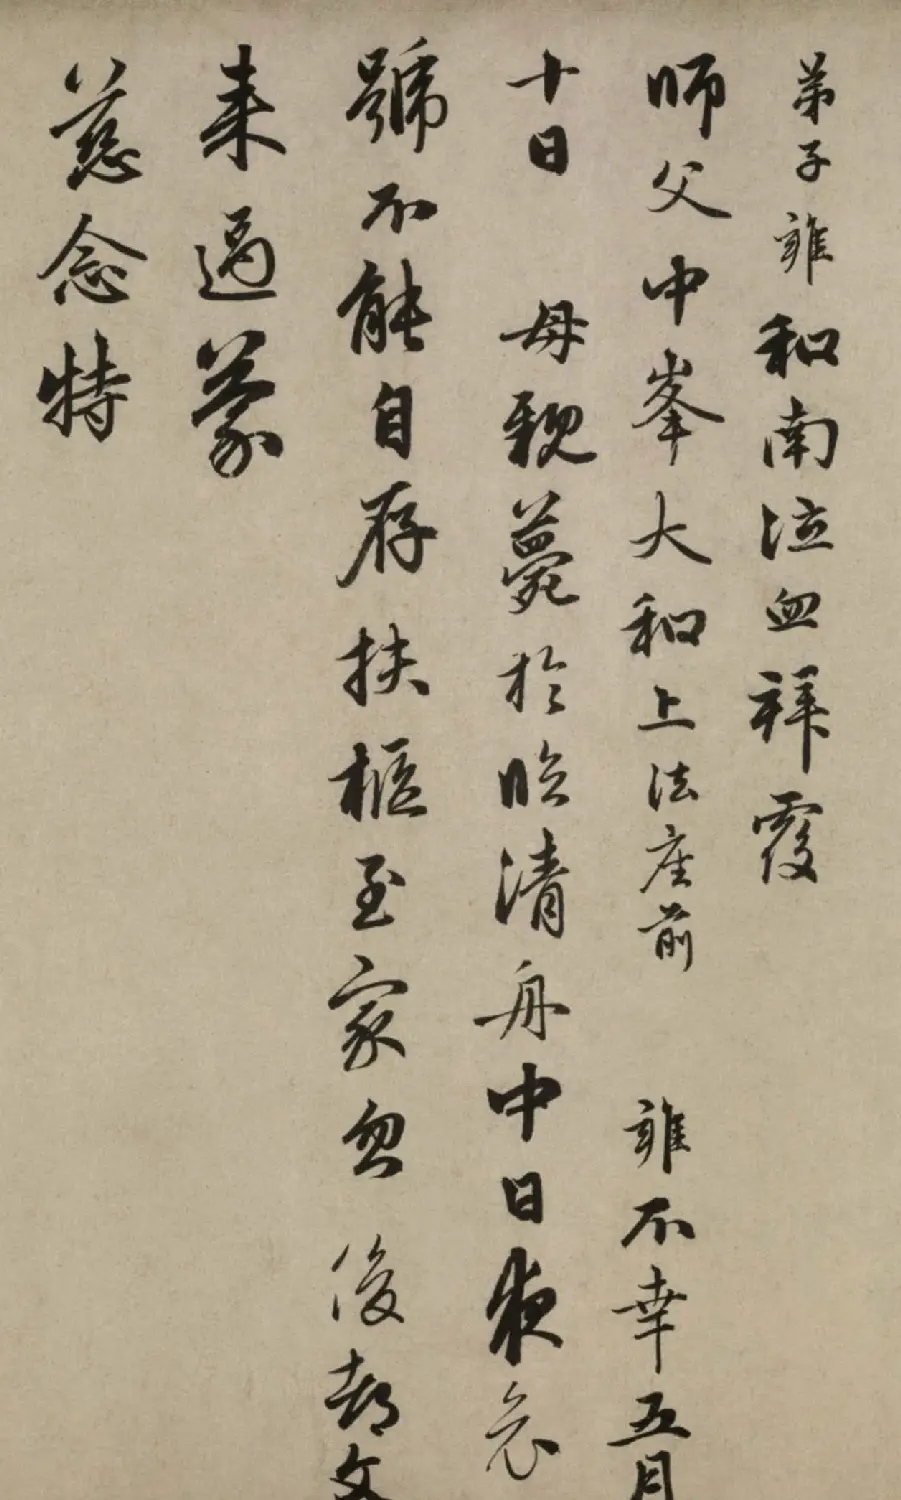 弟子雍和南泣血拜覆
師父中峯大和上法座前 雍不幸五月
十日 母親薨於臨清舟中日夜哀
號不能自存扶柩至家忽俊都文
来過蒙
慈念特